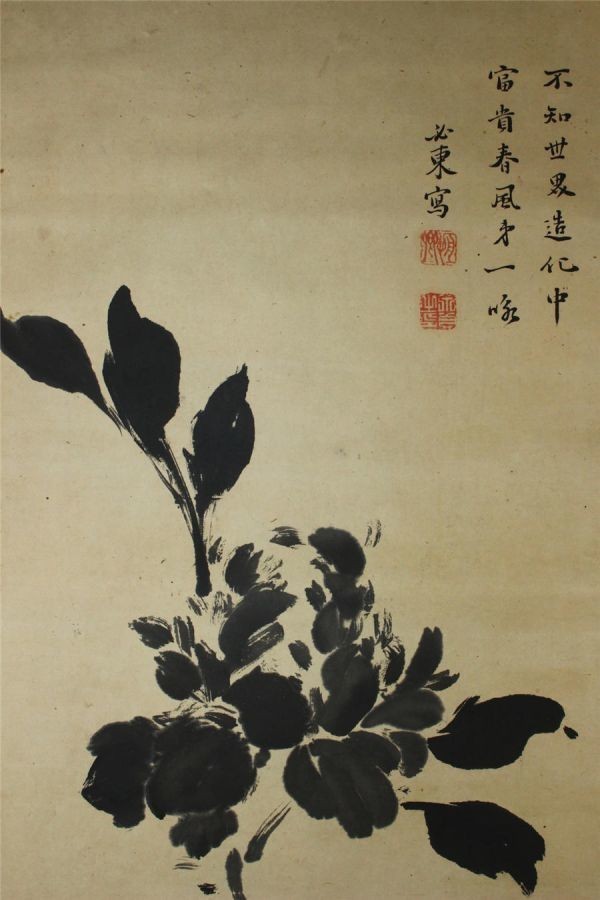 不知世界造化中
富貴春風弟一吹
必東寫